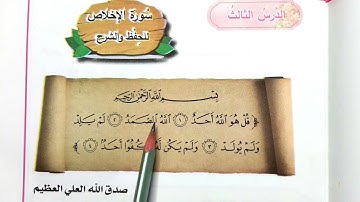 الدَّرسُ الثالثُ
سُورَةُ الإخلاصِ
للحِفْظِ والشرحِ
بِسْمِ اللَّهِ الرَّحْمَٰنِ الرَّحِيمِ
﴿ قُلْ هُوَ اللَّهُ أَحَدٌ ۝١ اللَّهُ الصَّمَدُ ۝٢ لَمْ يَلِدْ
وَلَمْ يُولَدْ ۝٣ وَلَمْ يَكُن لَّهُ كُفُوًا أَحَدٌ ۝٤ ﴾
صدق الله العلي العظيم